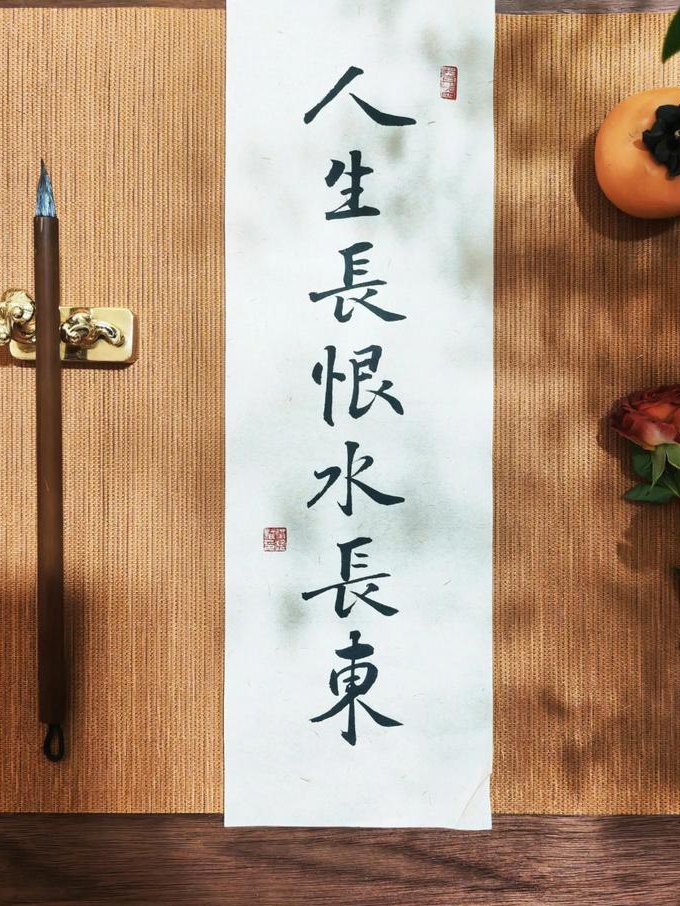 人生長恨水長東